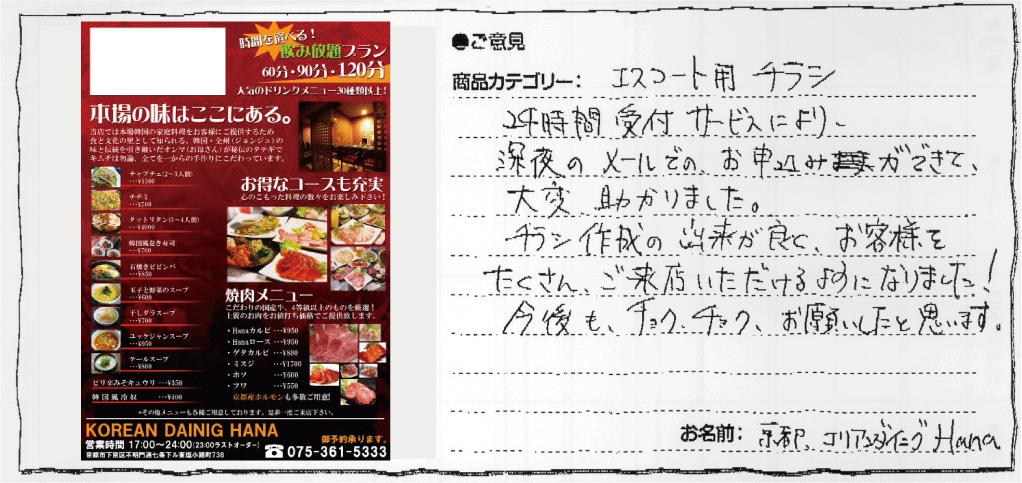 時間を選べる!
飲み放題プラン
60分・90分・120分
人気のドリンクメニュー30種類以上!
本場の味はここにある。
当店では本場韓国の家庭料理をお客様にご提供するため
食と文化の里として知られる、韓国・全州(ジョンジュ)の
味と伝統を引き継いだオンマ(お母さん)が秘伝のタテギで
キムチは勿論、全てを一からの手作りにこだわっています。
チャプチェ(2~3人前)
…¥1500
チヂミ
…¥700
タットリタン(3~4人前)
…¥4000
韓国風巻き寿司
…¥700
石焼きビビンバ
…¥850
玉子と野菜のスープ
…¥600
干しダラスープ
…¥700
ユッケジャンスープ
…¥950
テールスープ
…¥800
ピリ辛みそキュウリ …¥350
韓国風冷奴 …¥400
お得なコースも充実
心のこもった料理の数々をお楽しみ下さい!
焼肉メニュー
こだわりの国産牛、4等級以上のものを厳選!
上質のお肉をお値打ち価格でご提供致します。
・Hanaカルビ …¥950
・Hanaロース …¥950
・ゲタカルビ …¥800
・ミスジ …¥1700
・ホソ …¥600
・フワ …¥550
京都産ホルモンも多数ご用意!
*その他メニューも各種ご用意しております。是非一度ご来店下さい。
KOREAN DAINIG HANA
営業時間 17:00~24:00(23:00ラストオーダー)
京都市下京区不明門通七条下ル東塩小路町736
御予約承ります。
☎075-361-5333
●ご意見
商品カテゴリー: エスコート用 チラシ
24時間 受付 サービスにより、
深夜の メールでの、お申込みができて、
大変 助かりました。
チラシ作成の出来が良く、お客様を
たくさん、ご来店いただけるようになりました!
今後も、チョクチョク、お願いしたと思います。
お名前: 京都、コリアンダイニング Hana